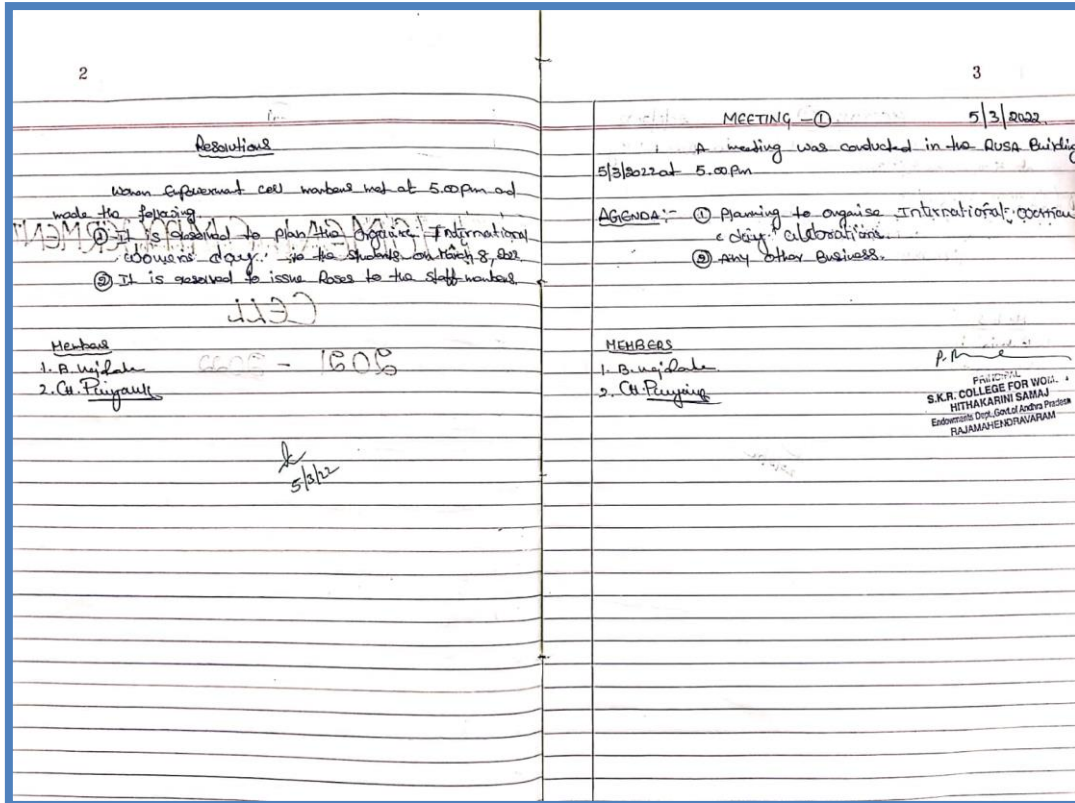 2
Resolutions
Women Empowerment cell members met at 5.00pm and
made the following.
① It is resolved to plan the Organise International
women's day. to the students on March 8, 2022
② It is resolved to issue Roses to the staff members.
Members
1. B.
2. CH. Priyanka
5/3/22
3
MEETING - ① 5/3/2022
A meeting was conducted in the RUSA Building
5/3/2022 at 5.00pm
AGENDA:- ① Planning to organise International women's
day celebrations.
② Any other Business.
MEMBERS
1. B.
2. CH. Priyanka
PRINCIPAL
S.K.R. COLLEGE FOR WOM
HITHAKARINI SAMAJ
Endowments Dept., Govt.of Andhra Pradesh
RAJAMAHENDRAVARAM